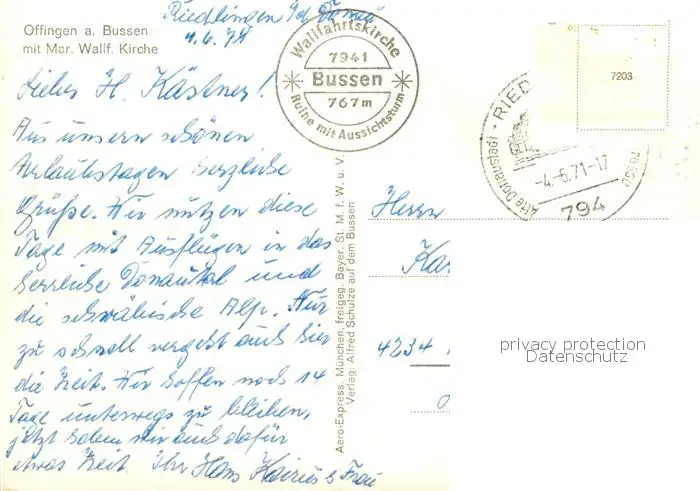 Offingen a. Bussen
mit Mar. Wallf. Kirche
Riedlingen a/d Donau
4.6.71
Wallfahrtskirche
7941
Bussen
767m
Ruine mit Aussichtsturm
7203
RIED
-4.-6.71-17
794
Alte Donaustadt
Lieber H. Kästner!
Aus unsern schönen
Urlaubstagen herzliche
Grüße. Wir nützen diese
Tage mit Ausflügen in das
herrliche Donautal und
die schwäbische Alp. Nur
zu schnell vergeht auch hier
die Zeit. Wir hoffen noch 14
Tage unterwegs zu bleiben,
jetzt haben wir auch dafür
etwas Zeit. Ihr Hans Kairies & Frau
Aero-Express, München, freigeg. Bayer. St. M. f. W. u. V.
Verlag: Alfred Schulze auf dem Bussen
Herrn
4234
privacy protection
Datenschutz